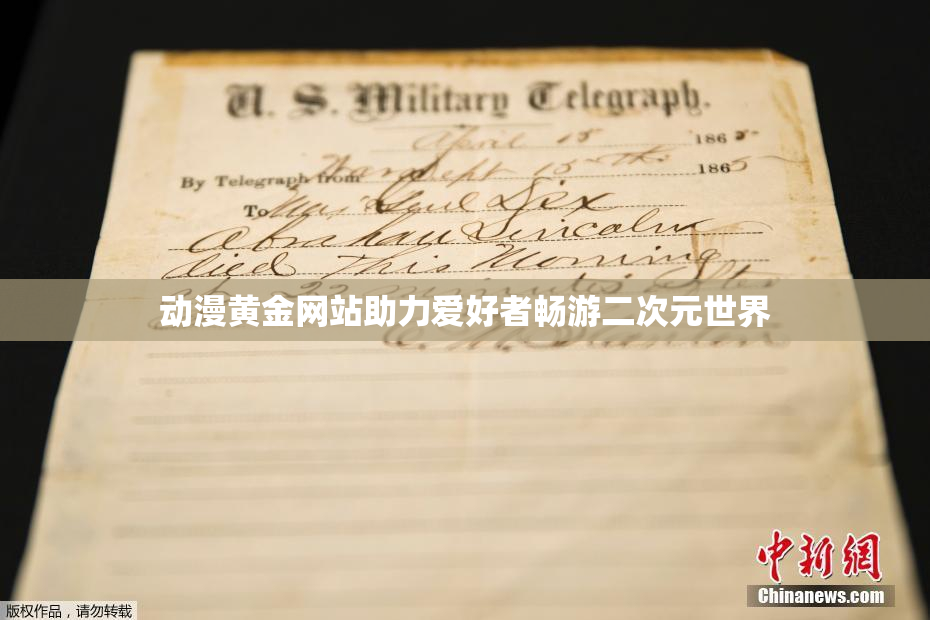 U. S. Military Telegraph.
April 15 1865
By Telegraph from War Dept 15th 1865
To Maj Genl Dix
Abraham Lincoln
died This Morning
at 22 minutes after
动漫黄金网站助力爱好者畅游二次元世界
E. M. Stanton
中新網
Chinanews.com
版权作品，请勿转载